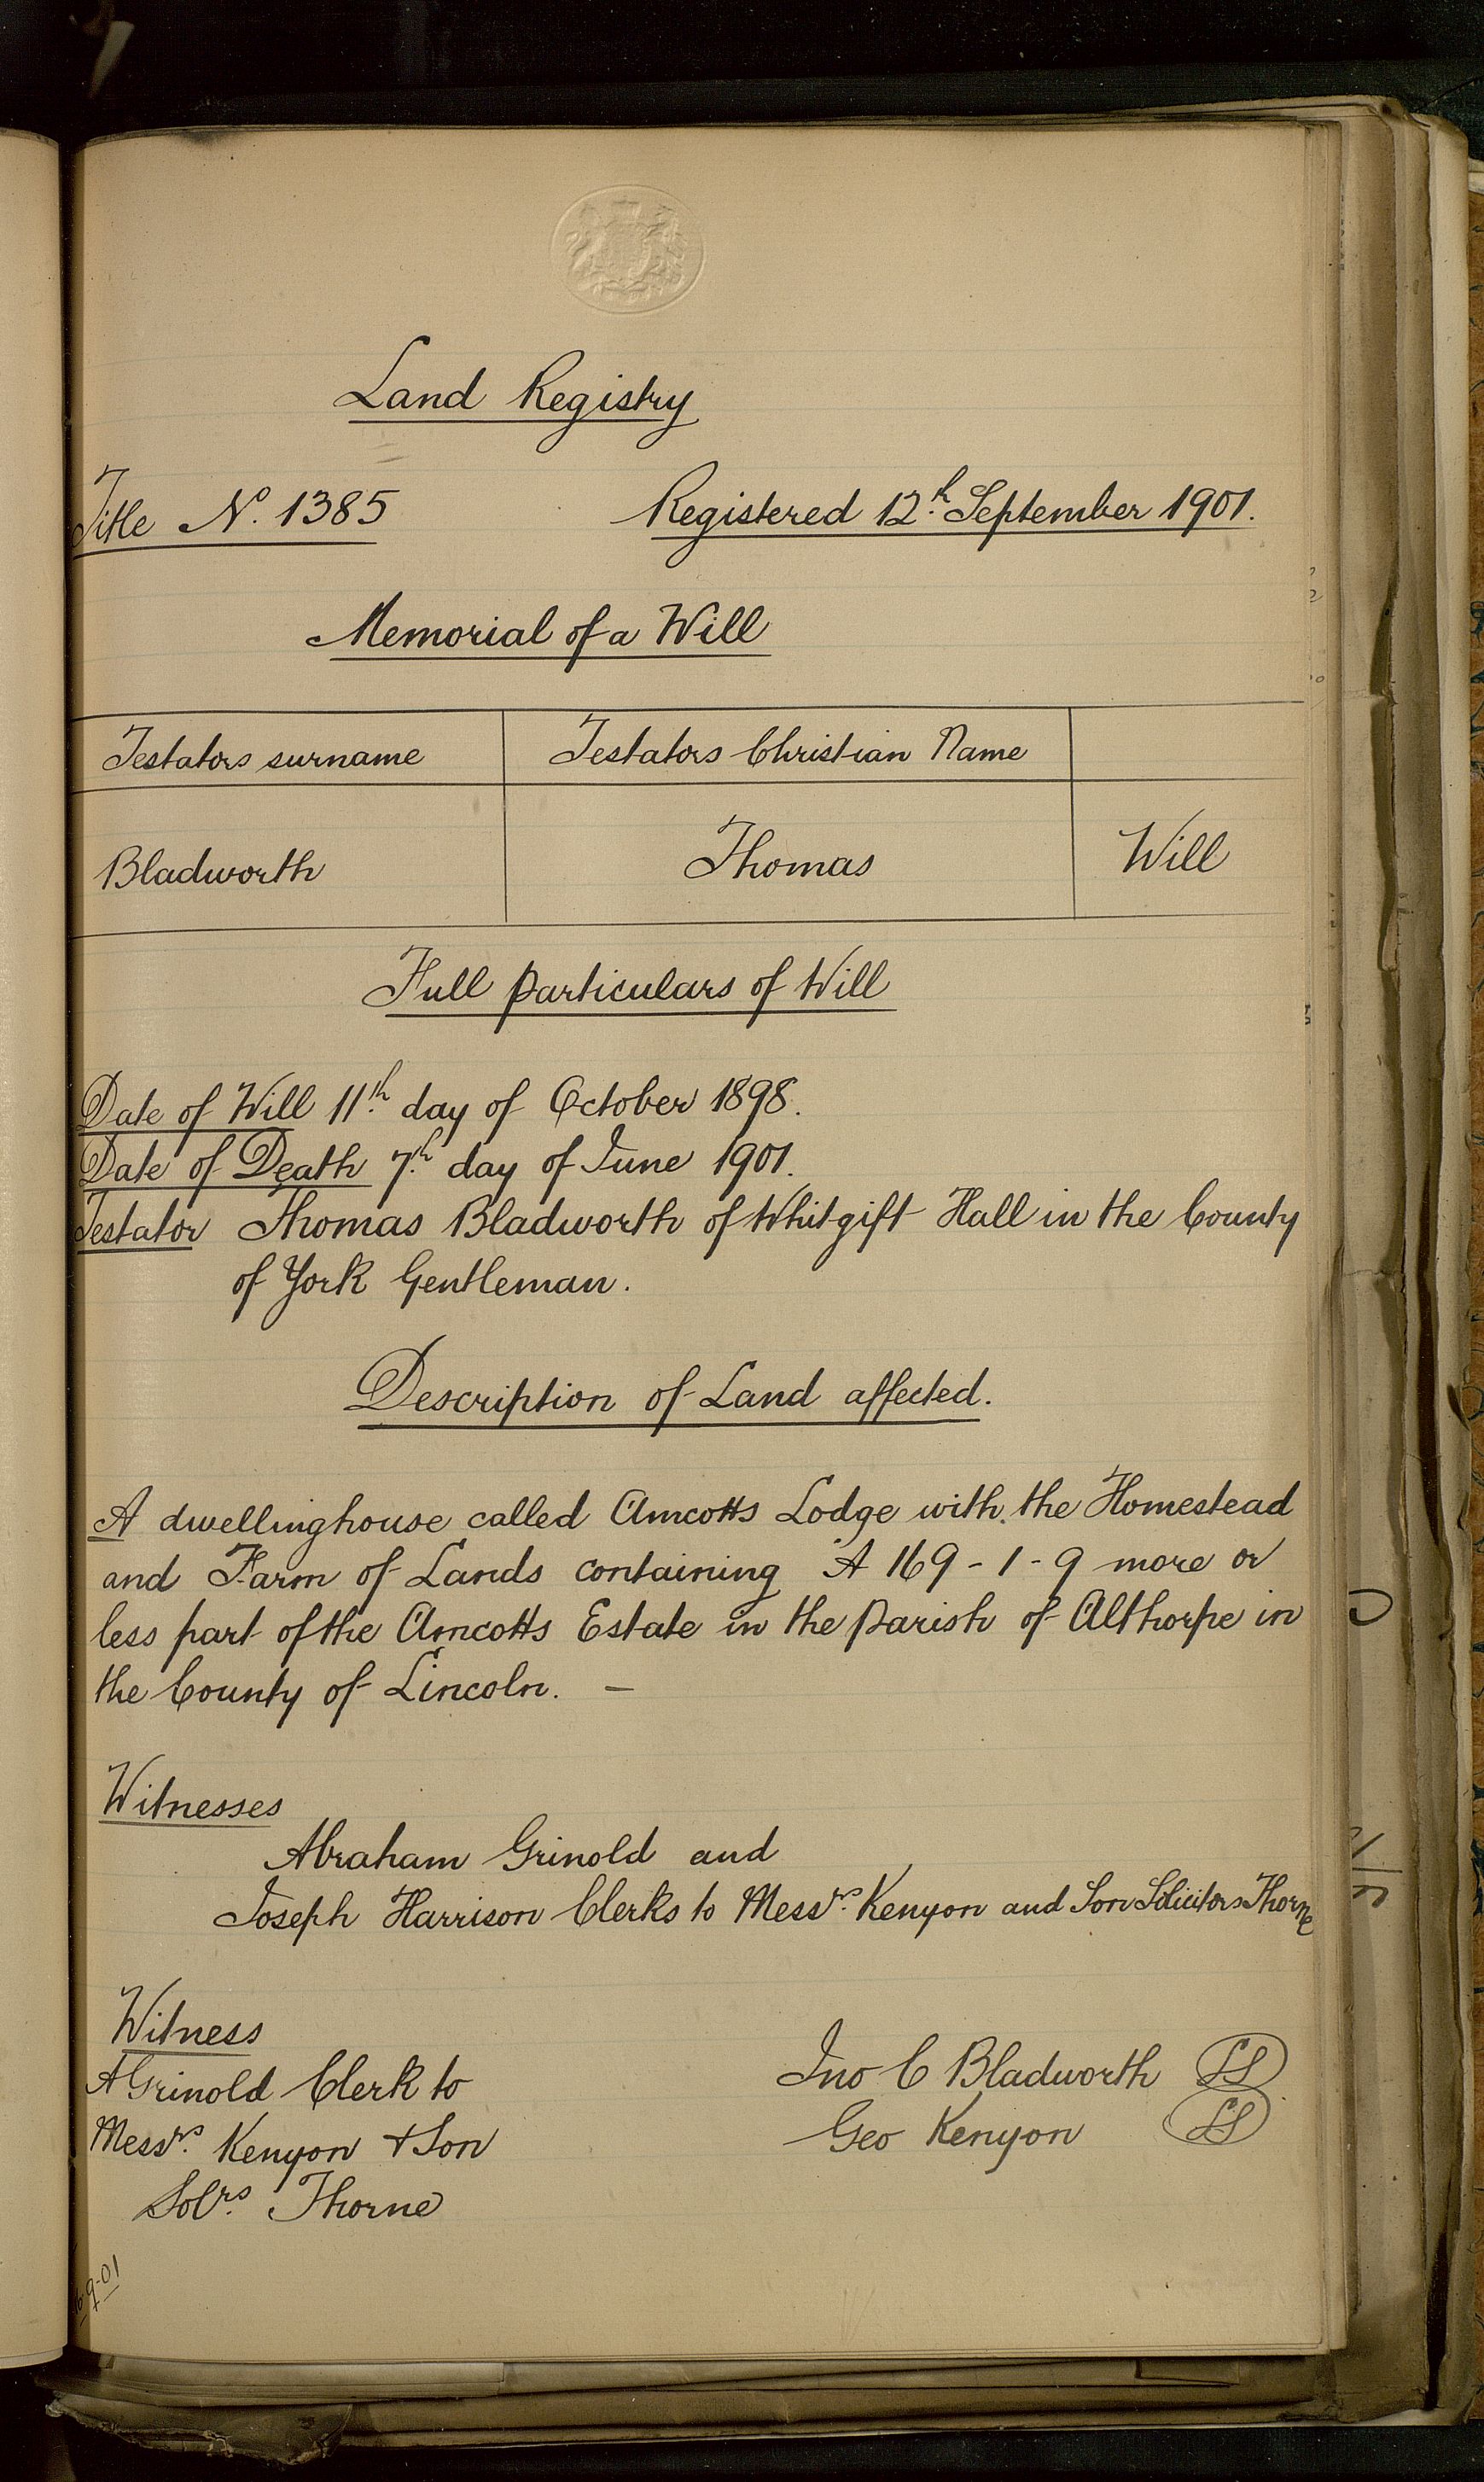 Land Registry
Title No. 1385 Registered 12th September 1901.
Memorial of a Will
Testators surname Testators Christian Name
Bladworth Thomas Will
Full particulars of Will
Date of Will 11th day of October 1898.
Date of Death 7th day of June 1901.
Testator Thomas Bladworth of Whitgift Hall in the County
of York Gentleman.
Description of Land affected.
A dwellinghouse called Amcotts Lodge with the Homestead
and Farm of Lands containing A 169-1-9 more or
less part of the Amcotts Estate in the parish of Althorpe in
the County of Lincoln. —
Witnesses
Abraham Grinold and
Joseph Harrison Clerks to Messrs. Kenyon and Son Solicitors Thorne
Witness
A Grinold Clerk to
Messrs. Kenyon & Son
Solrs. Thorne
Jno C Bladworth LS
Geo Kenyon LS
9-01